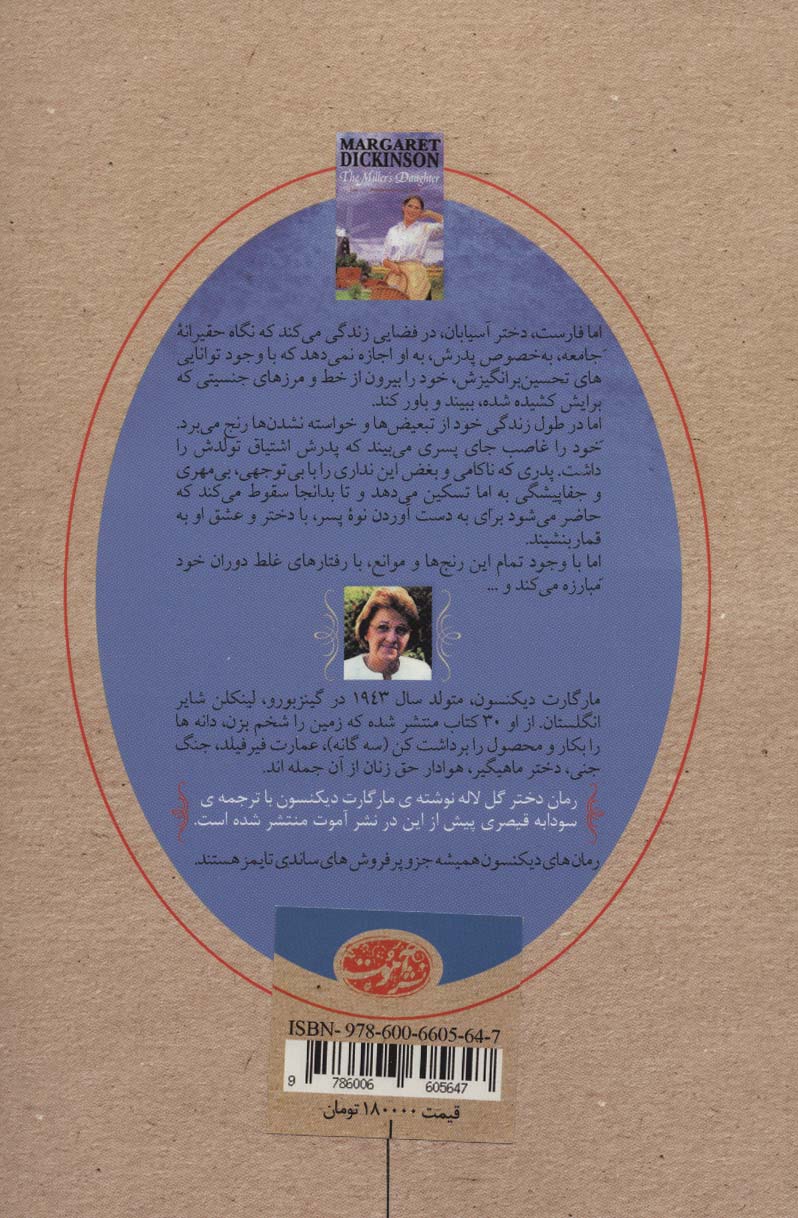 MARGARET
DICKINSON
The Miller's Daughter
اما فارست، دختر آسیابان، در فضایی زندگی می‌کند که نگاه حقیرانهٔ
جامعه، به‌خصوص پدرش، به او اجازه نمی‌دهد که با وجود توانایی
های تحسین‌برانگیزش، خود را بیرون از خط و مرزهای جنسیتی که
برایش کشیده شده، ببیند و باور کند.
اما در طول زندگی خود از تبعیض‌ها و خواسته نشدن‌ها رنج می‌برد.
خود را غاصب جای پسری می‌بیند که پدرش اشتیاق تولدش را
داشت. پدری که ناکامی و بغض این نداری را با بی‌توجهی، بی‌مهری
و جفاپیشگی به اما تسکین می‌دهد و تا بدانجا سقوط می‌کند که
حاضر می‌شود برای به دست آوردن نوهٔ پسر، با دختر و عشق او به
قمار بنشیند.
اما با وجود تمام این رنج‌ها و موانع، با رفتارهای غلط دوران خود
مبارزه می‌کند و ...
مارگارت دیکنسون، متولد سال ۱۹۴۳ در گینزبورو، لینکلن شایر
انگلستان. از او ۳۰ کتاب منتشر شده که زمین را شخم بزن، دانه ها
را بکار و محصول را برداشت کن (سه گانه)، عمارت فیرفیلد، جنگ
جنی، دختر ماهیگیر، هوادار حق زنان از آن جمله اند.
رمان دختر گل لاله نوشته ی مارگارت دیکنسون با ترجمه ی
سودابه قیصری پیش از این در نشر آموت منتشر شده است.
رمان‌های دیکنسون همیشه جزو پرفروش های ساندی تایمز هستند.
نشر آموت
ISBN- 978-600-6605-64-7
9 786006 605647
قیمت ۱۸۰۰۰۰ تومان